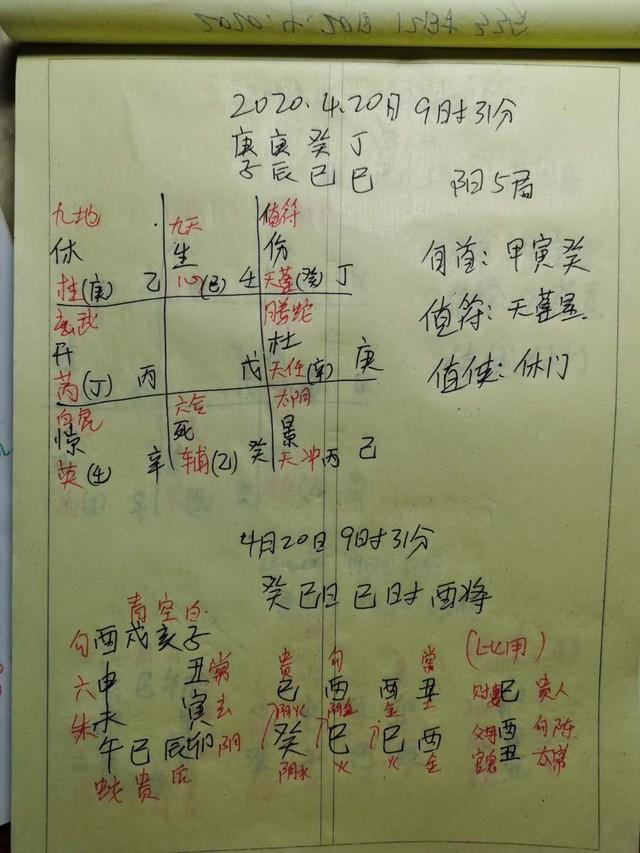 2020.4.20日 9时31分
庚 庚 癸 丁
子 辰 巳 巳
阳5局
九地 九天 值符
休 生 伤
柱(庚) 乙 心(己) 壬 天蓬(癸) 丁
玄武 腾蛇
开 杜
芮(丁) 丙 戊 天任(辛) 庚
白虎 六合 太阴
惊 死 景
英(壬) 辛 辅(乙) 癸 天冲 丙 己
旬首: 甲寅癸
值符: 天蓬星
值使: 休门
4月20日 9时31分
癸巳日 巳时 酉将
青 空 白
勾 酉 戌 亥 子
六 申 丑 常
朱 未 寅 玄
午 巳 辰 卯 阴
蛇 贵 后
贵 勾 常
巳 酉 酉 丑
阴火 阴金 金 土
癸 巳 巳 酉
阴水 火 火 金
(比用)
财妻 巳 贵人
父母 酉 勾陈
官鬼 丑 太常